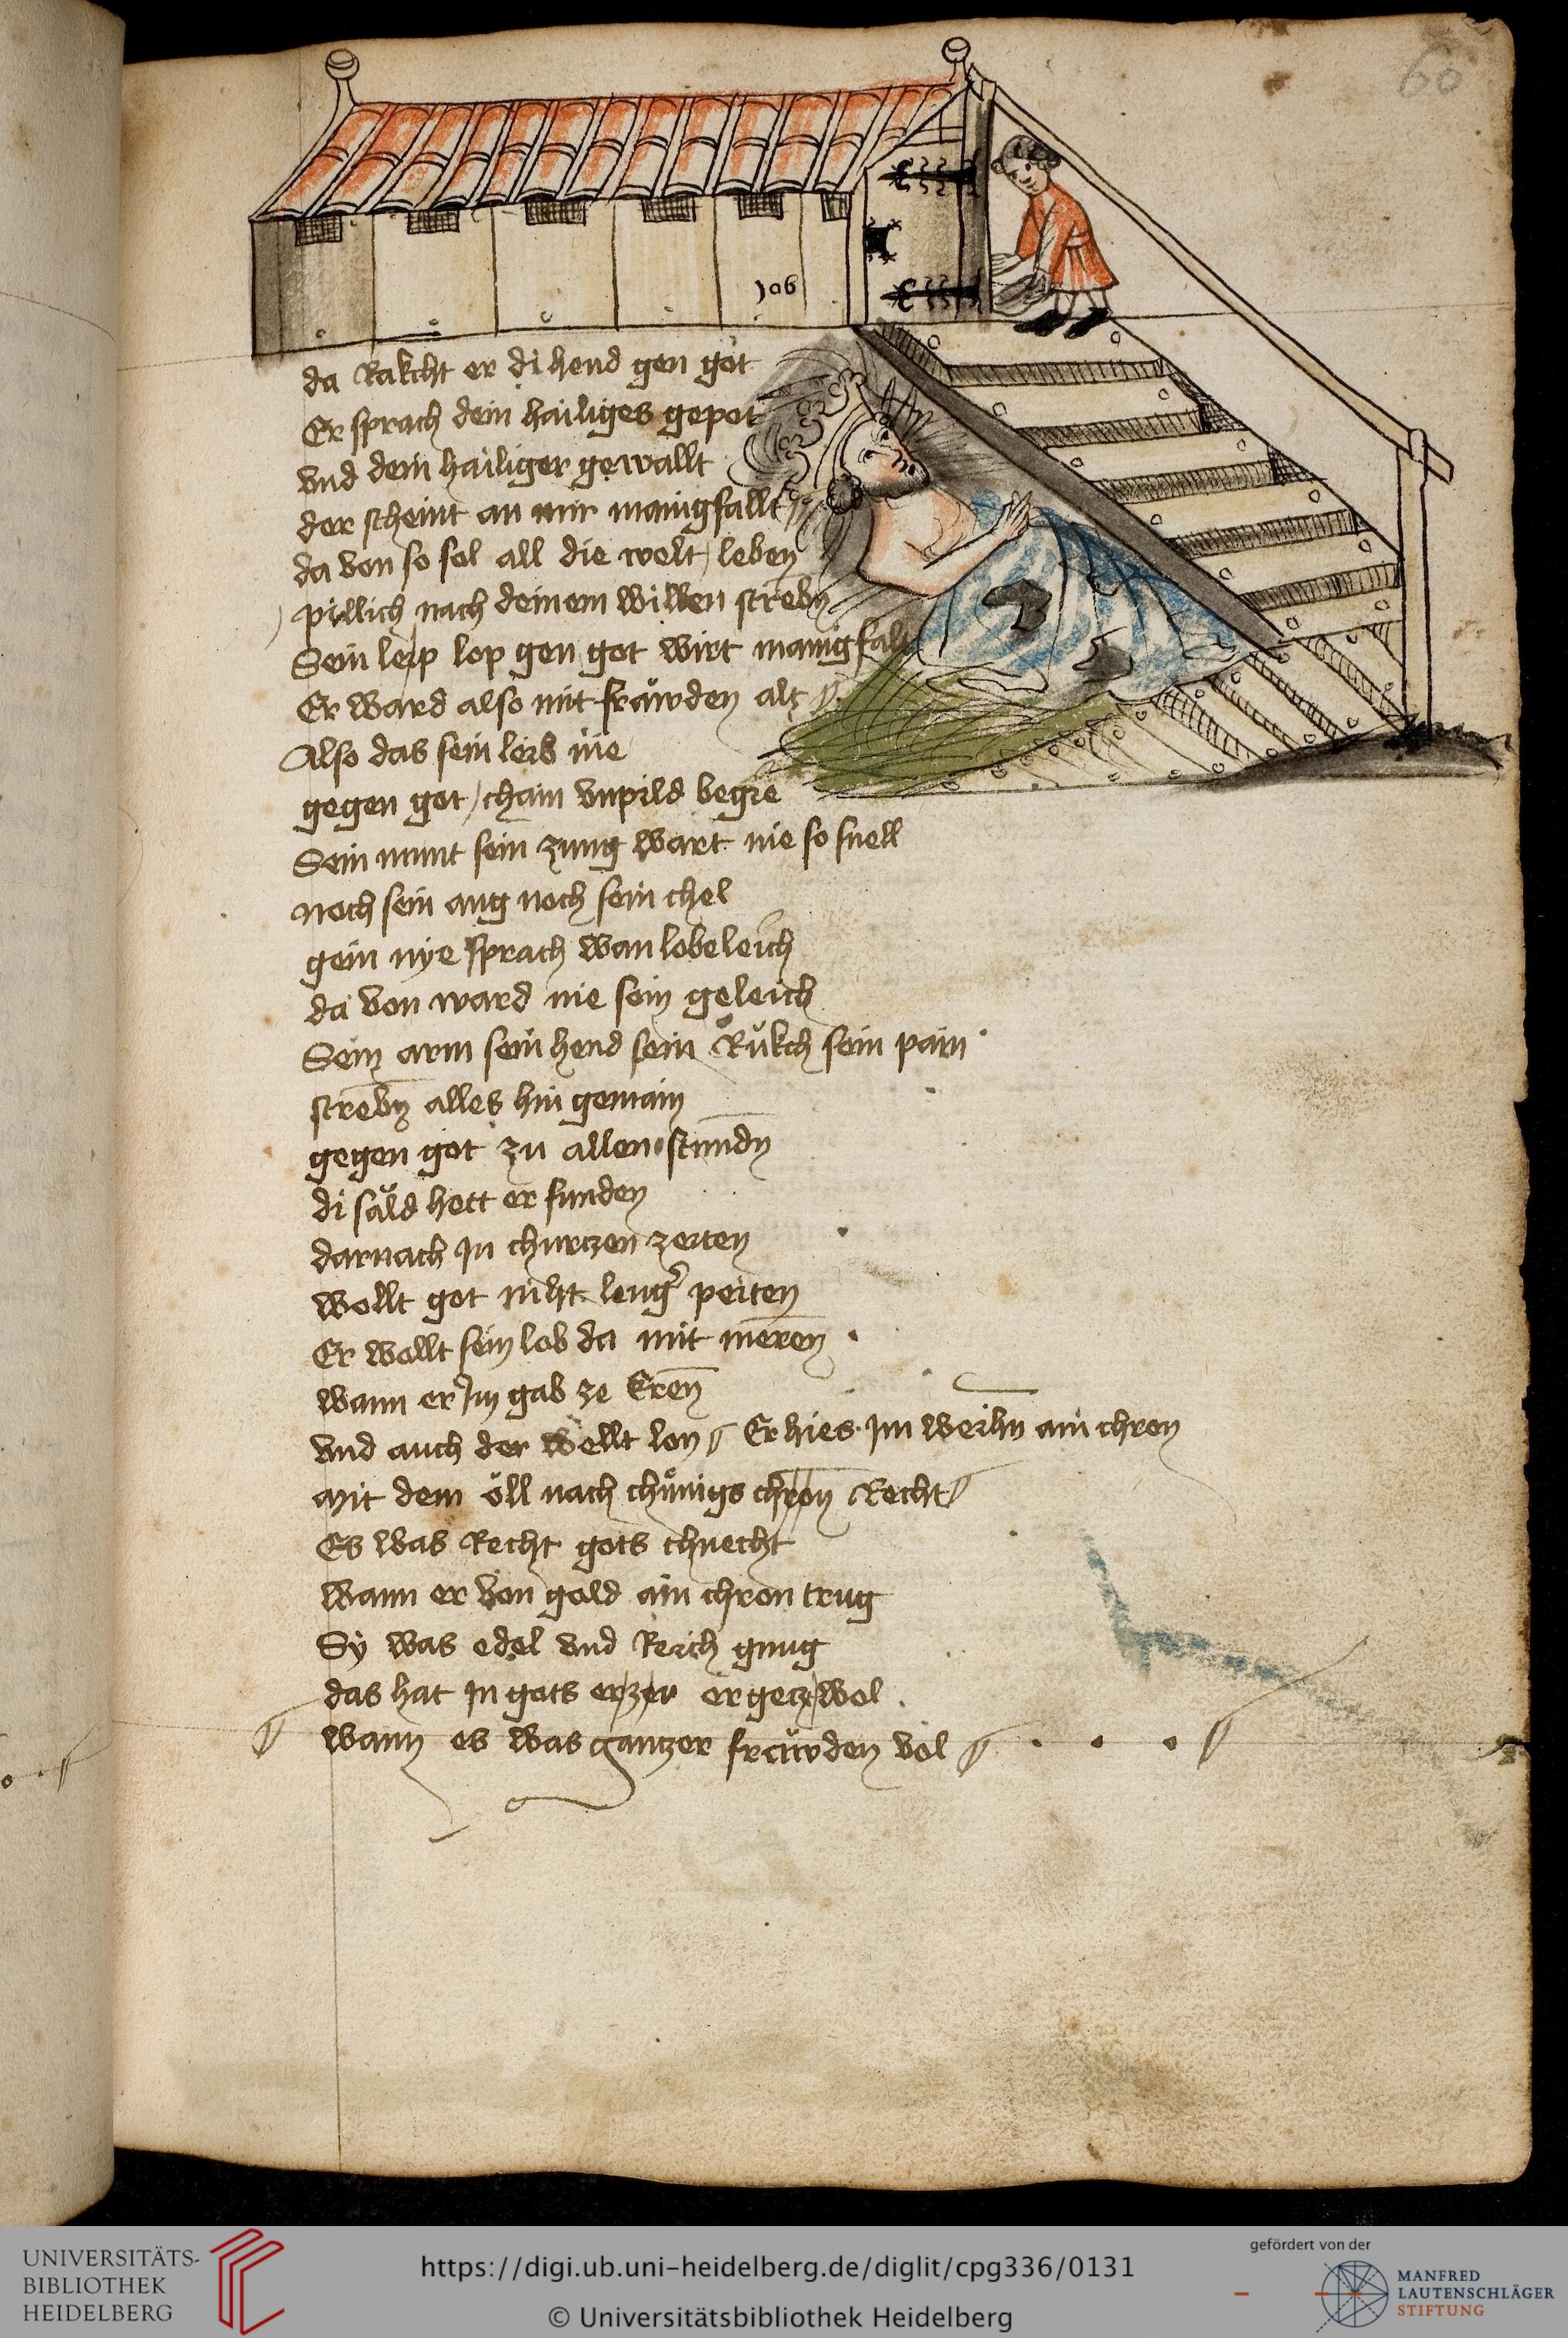 60
106
da Rakcht er di hend gen got
Er sprach dein hailiges gepot
vnd dein hailiger gewallt
der scheint an mir manigfallt
da von so sol all die welt leben
pillich nach deinem willen strebn
Sein leip lop gen got wirt manigfalt
Er ward also mit fräwden alt
Also das sein leib nie
gegen got chain vnpild begie
Sein munt sein zung wart nie so snell
noch sein aug noch sein chel
gein nye sprach wan lobeleich
da von ward nie sein geleich
Sein arm sein hend sein Rükch sein pain
strebn alles hin gemain
gegen got zu allen stundn
di säld hett er funden
darnach jn churczen zeiten
wollt got niht leng' peiten
Er wollt sein lob da mit meren
wann er Im gab ze Eren
vnd auch der wellt lon Er hies Im weihn ain chron
mit dem öll nach chünigs chron Recht
Es was Recht gots chnecht
wann er von gold ain chron trug
Sy was edel vnd Reich gnug
das hat jn gots ergetzt wol
wann es was gantzer fräwden vol
UNIVERSITÄTS-
BIBLIOTHEK
HEIDELBERG
https://digi.ub.uni-heidelberg.de/diglit/cpg336/0131
© Universitätsbibliothek Heidelberg
gefördert von der
MANFRED
LAUTENSCHLÄGER
STIFTUNG